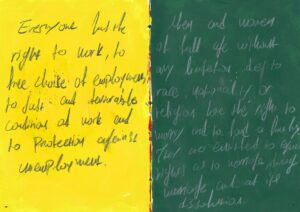 Everyone has the
right to work, to
free choice of employment,
to just and favorable
conditions of work and
to protection against
unemployment.
Men and women
of full age without
any limitation due to
race, nationality or
religion have the right to
marry and to found a family.
They are entitled to equal
rights as to marriage, during
marriage and at its
dissolution.